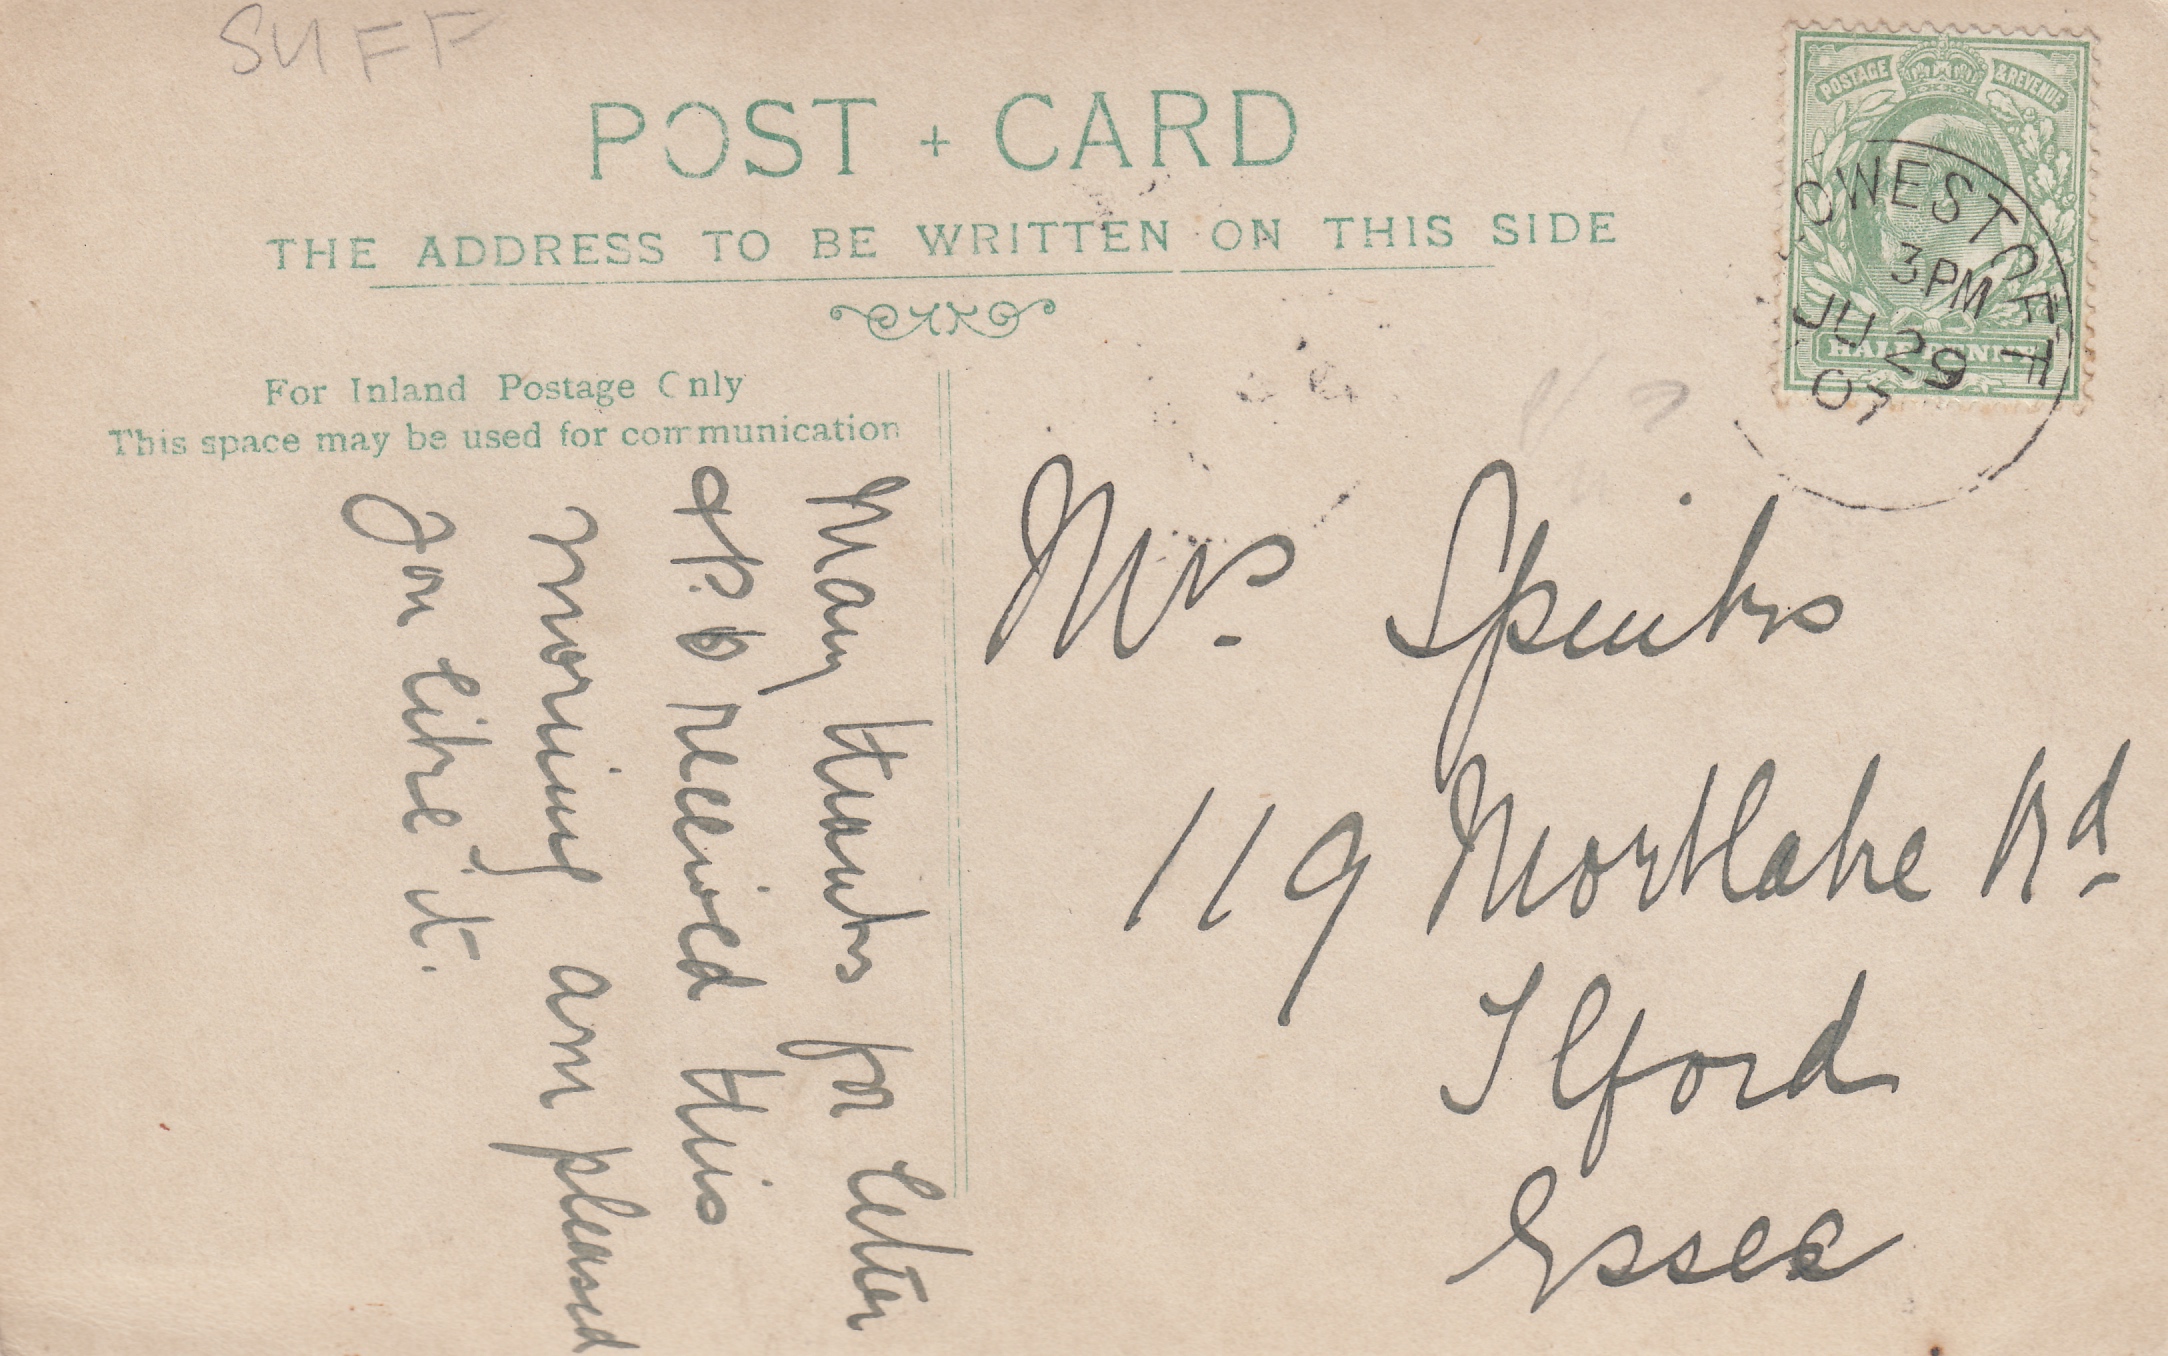 SUFF
POST + CARD
THE ADDRESS TO BE WRITTEN ON THIS SIDE
For Inland Postage Only
This space may be used for communication
POSTAGE & REVENUE
HALFPENNY
LOWESTOFT
3 PM
JU 29
07
Many thanks for letter
& P. O received this
morning am pleased
you like it.
Mrs. Spinks
119 Mortlake Rd
Ilford
Essex